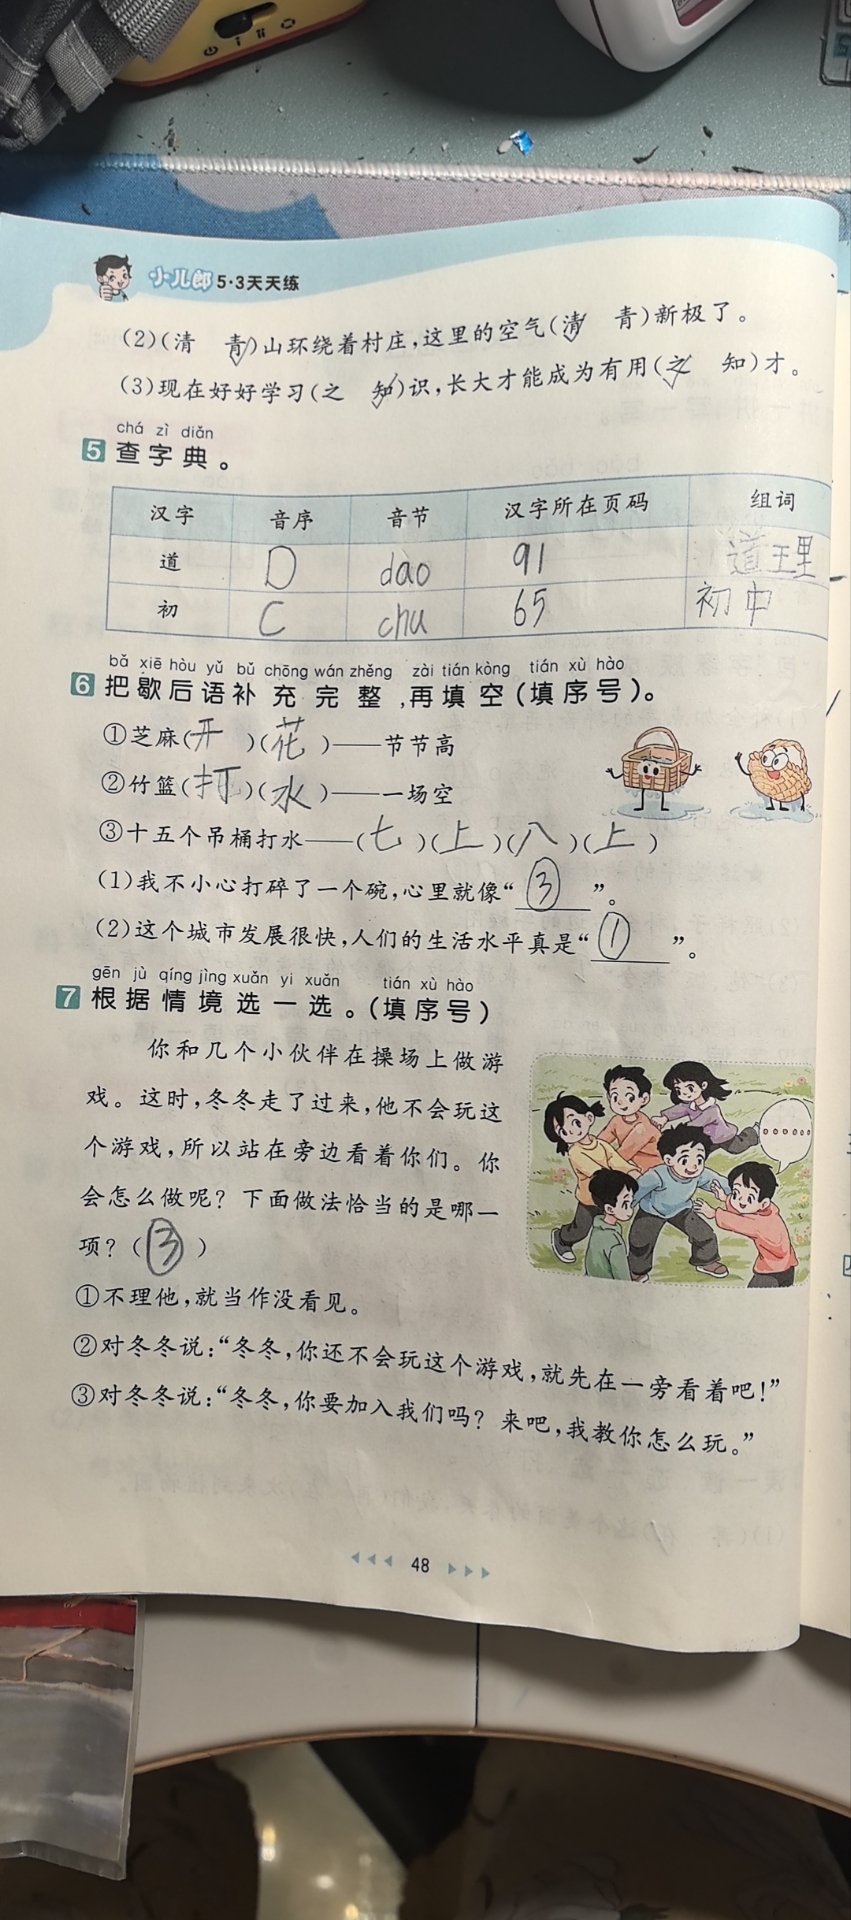 小儿郎 5·3天天练
(2)(清 青)山环绕着村庄,这里的空气(清 青)新极了。
(3)现在好好学习(之 知)识,长大才能成为有用(之 知)才。
chá zì diǎn
5 查字典。
汉字 音序 音节 汉字所在页码 组词
道 D dao 91 道理
初 C chu 65 初中
bǎ xiē hòu yǔ bǔ chōng wán zhěng zài tián kòng tián xù hào
6 把歇后语补充完整,再填空(填序号)。
①芝麻(开)(花)——节节高
②竹篮(打)(水)——一场空
③十五个吊桶打水——(七)(上)(八)(上)
(1)我不小心打碎了一个碗,心里就像“③”。
(2)这个城市发展很快,人们的生活水平真是“①”。
gēn jù qíng jìng xuǎn yi xuǎn tián xù hào
7 根据情境选一选。(填序号)
你和几个小伙伴在操场上做游
戏。这时,冬冬走了过来,他不会玩这
个游戏,所以站在旁边看着你们。你
会怎么做呢?下面做法恰当的是哪一
项?(③)
①不理他,就当作没看见。
②对冬冬说:“冬冬,你还不会玩这个游戏,就先在一旁看着吧!”
③对冬冬说:“冬冬,你要加入我们吗?来吧,我教你怎么玩。”
48